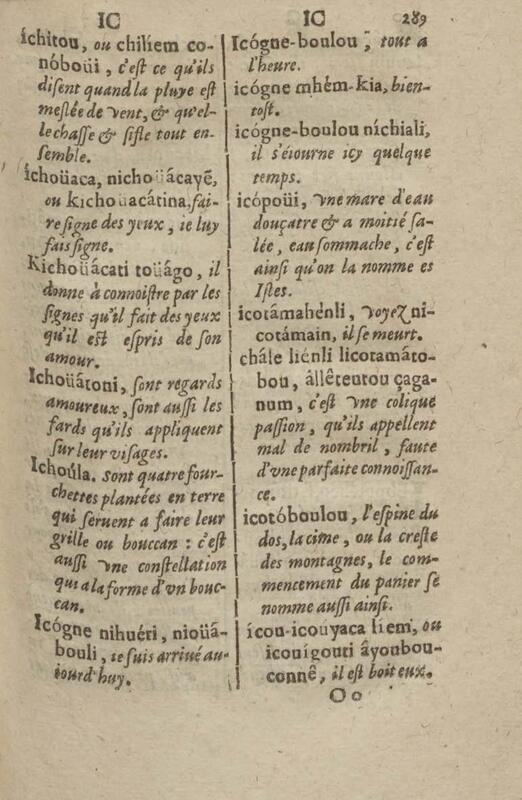 IC
IC 289
Íchitou, ou chiliem co-
nóboüi, c'est ce qu'ils
disent quand la pluye est
meslée de vent, & qu'el-
le chasse & sifle tout en-
semble.
íchoüaca, nichoüácayẽ,
ou kichoüacátina, fai-
re signe des yeux, ie luy
fais signe.
Kichoüácati toüágo, il
donne à connoistre par les
signes qu'il fait des yeux
qu'il est espris de son
amour.
Ichoüátoni, sont regards
amoureux, sont aussi les
fards qu'ils appliquent
sur leur visages.
Ichoúla. sont quatre four-
chettes plantées en terre
qui seruent a faire leur
grille ou bouccan : c'est
aussi vne constellation
qui a la forme d'vn bouc-
can.
Icógne nihuéri, nioüá-
bouli, ie suis arriué au-
iourd'huy.
Icógne-boulou, tout a
l'heure.
icógne mhém-kia, bien-
tost.
icógne-boulou níchiali,
il s'éiourne icy quelque
temps.
icópoüi, vne mare d'eau
douçatre & a moitié sa-
lée, eau sommache, c'est
ainsi qu'on la nomme es
Istes.
icotámahénli, voyez ni-
cotámain, il se meurt.
châle liénli licotamáto-
bou, àllêteutou çaga-
num, c'est vne colique
passion, qu'ils appellent
mal de nombril, faute
d'vne parfaite connoissan-
ce.
icotóboulou, l'espine du
dos, la cime, ou la creste
des montagnes, le com-
mencement du panier se
nomme aussi ainsi.
ícou-icouyaca liem, ou
icouígouti âyoubou-
connê, il est boiteux.
Oo